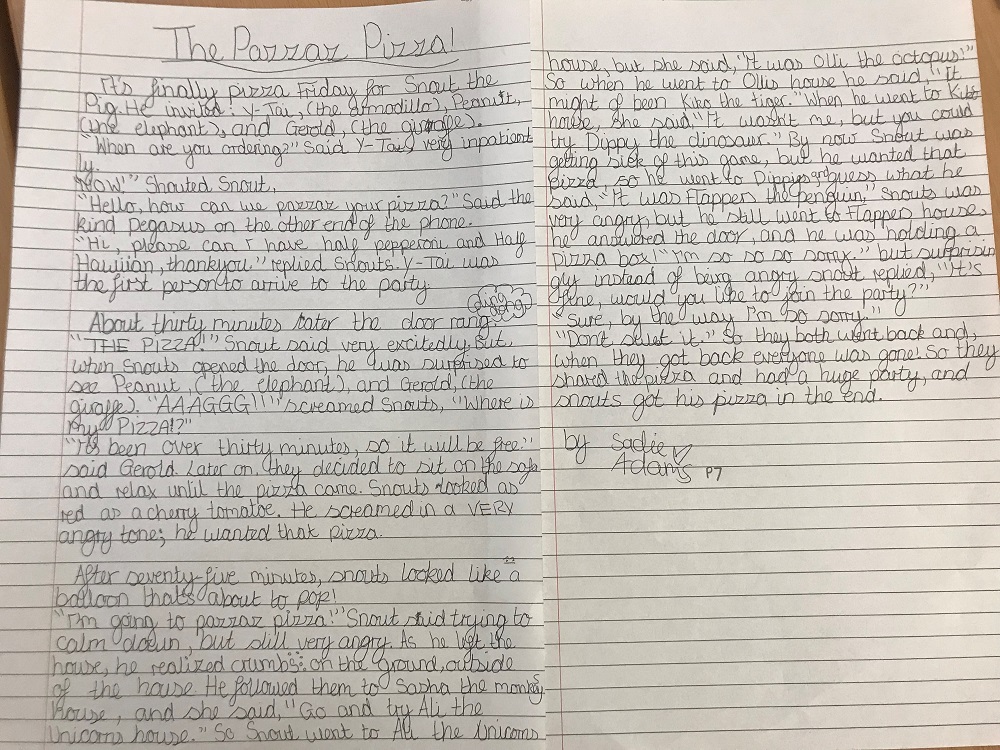 The Pazzaz Pizza!
It's finally pizza Friday for Snout the
Pig. He invited: Y-Tai, (the armadillo), Peanut,
(the elephant), and Gerold, (the giraffe).
"When are you ordering?" Said Y-Tai, very inpatient
ly.
"NOW!" Shouted Snout,
"Hello, how can we pazzaz your pizza?" Said the
kind Pegasus on the other end of the phone.
"Hi, please can I have half pepperoni and Half
Hawjian, thankyou." replied Snouts. Y-Tai was
the first person to arrive to the party.
ding dong
About thirty minutes later the door rang.
"THE PIZZA!" Snout said very excitedly. But,
when Snouts opened the door, he was surprised to
see Peanut, (the elephant), and Gerold, (the
giraffe). "AAAGGG!!" screamed Snouts, "Where is
my PIZZA!?"
"It's been over thirty minutes, so it will be free."
said Gerold. Later on, they decided to sit on the sofa
and relax until the pizza came. Snouts looked as
red as a cherry tomatoe. He screamed in a VERY
angry tone; he wanted that pizza.
After seventy-five minutes, snouts looked like a
balloon thats about to pop!
"I'm going to pazzaz pizza!" Snout said trying to
calm down, but still very angry. As he left the
house, he realized crumbs on the ground, outside
of the house. He followed them to Sasha the monkeys
house, and she said, "Go and try Ali the
Unicorns house." So Snout went to Ali the Unicorns
house, but she said, "It was Olli the octopus!"
So when he went to Ollis house he said, "It
might of been Kiko the tiger." When he went to Kikos
house, she said, "It wasn't me, but you could
try Dippy the dinosaur." By now Snout was
getting sick of this game, but he wanted that
pizza, so he went to Dippies and guess what he
said, "It was Flappers the Penguin," Snouts was
very angry, but he still went to Flappers house,
he answered the door, and he was holding a
pizza box! "I'm so so so sorry." but surprisin
gly instead of being angry snout replied, "It's
fine, would you like to join the party?"
"Sure, by the way I'm so sorry."
"Don't sewet it." So they both went back and,
when they got back everyone was gone! So they
shared the pizza and had a huge party, and
snouts got his pizza in the end.
by Sadie
Adams P7